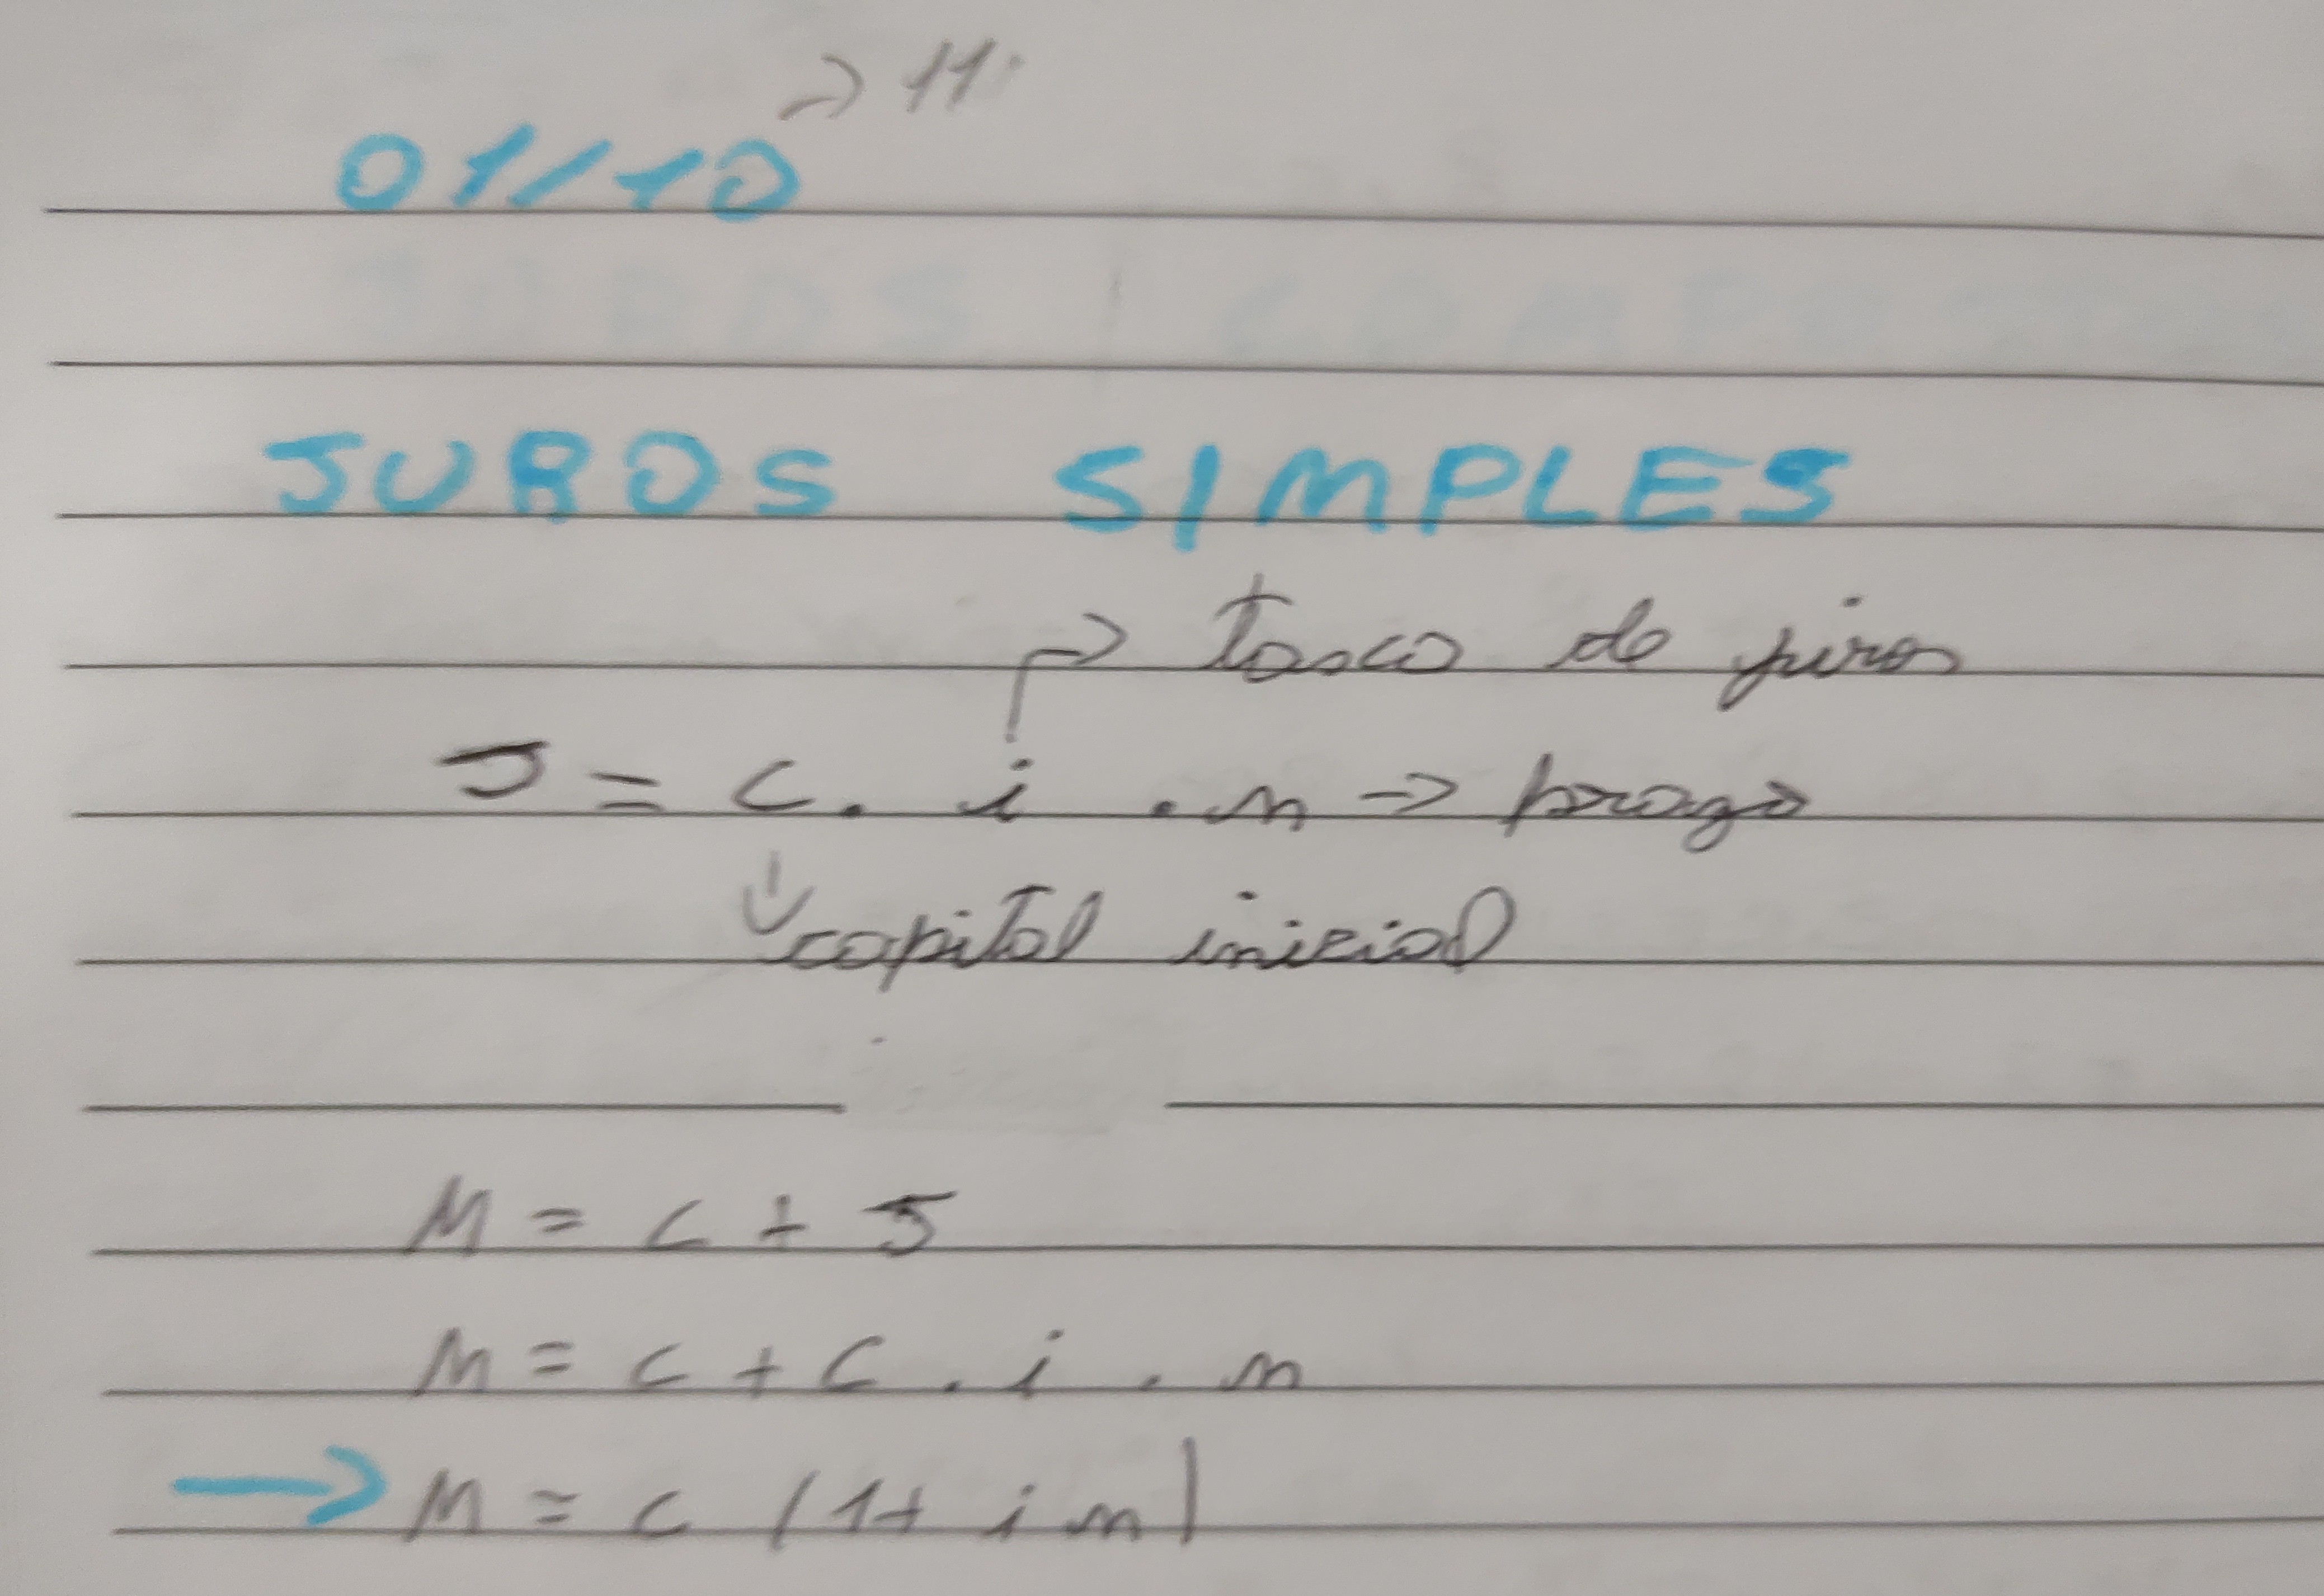 → 11.
01/10
JUROS SIMPLES
→ Taxa de juros
J = C . i . n → prazo
↓ capital inicial
M = C + J
M = C + C . i . n
→ M = C (1 + i n)